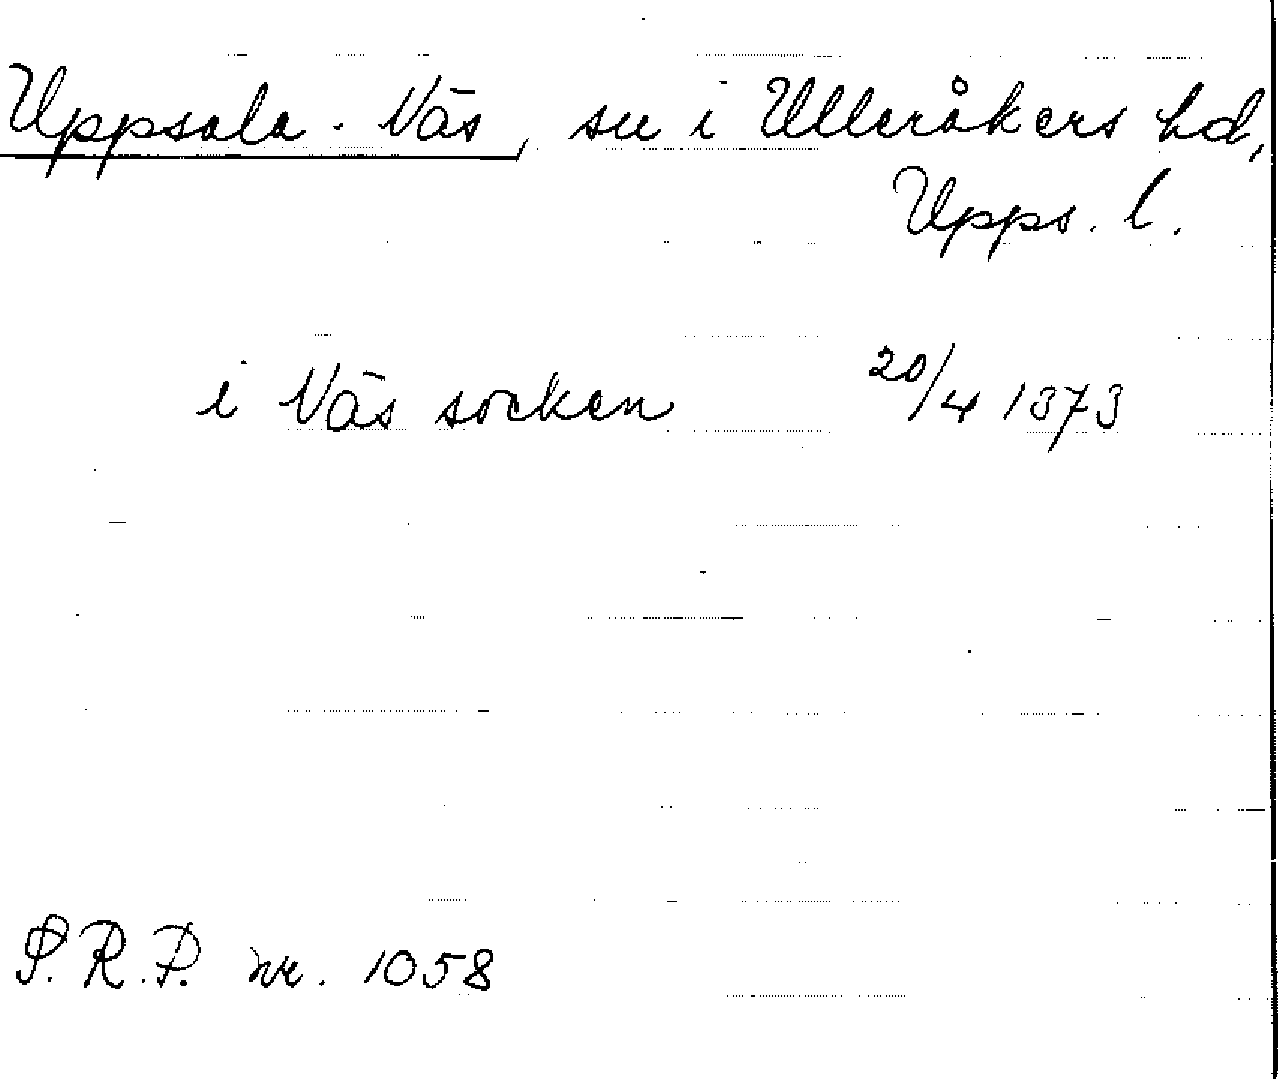 Uppsala-Näs, sn i Ulleråkers hd,
Upps. l.
i Näs socken 20/4 1373
S.R.P. nr. 1058